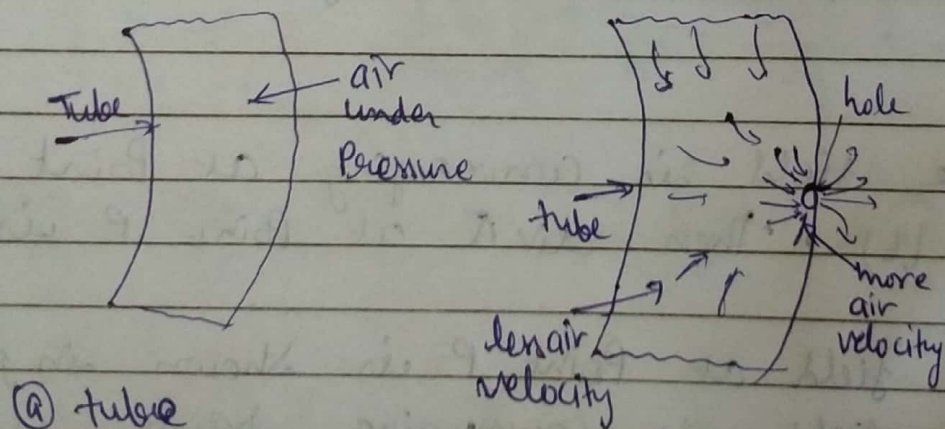 Tube
air
under
Pressure
hole
tube
more
air
velocity
less air
velocity
ⓐ tube